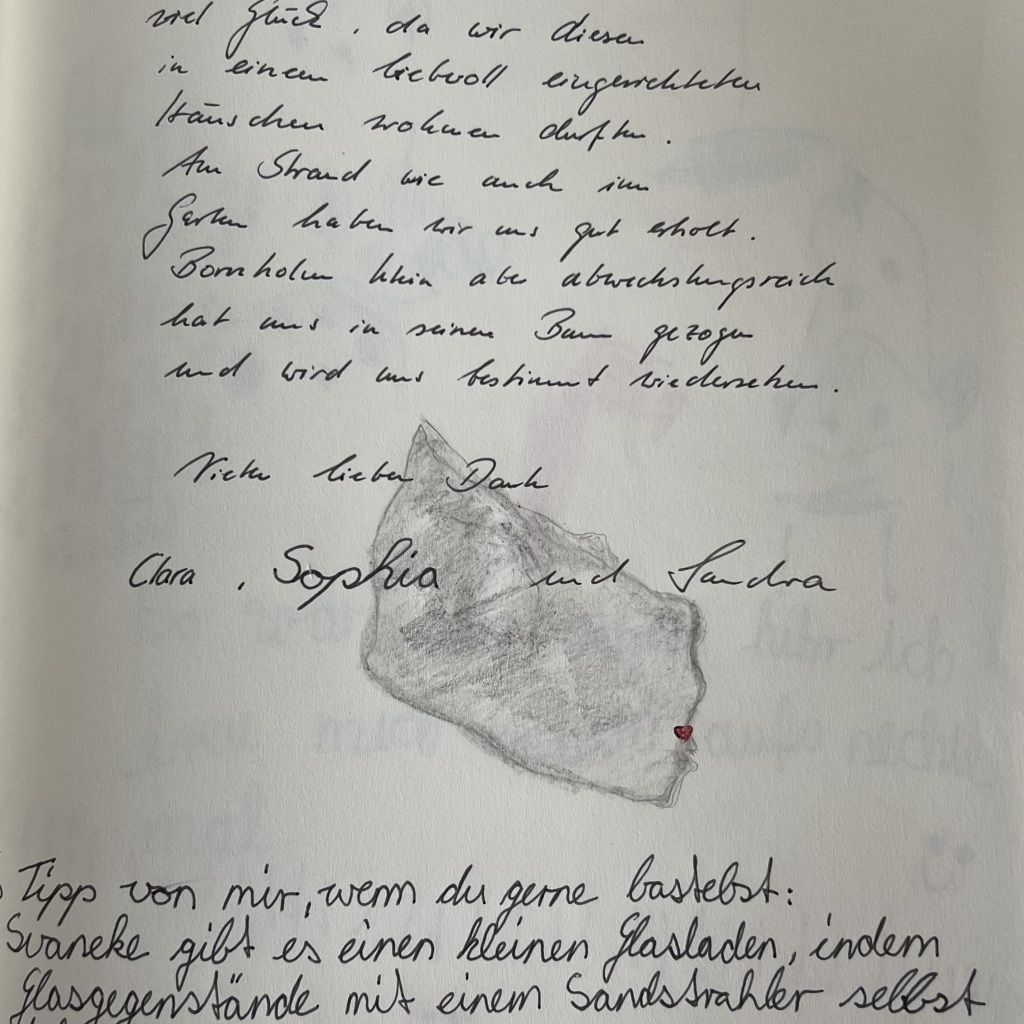 viel Glück, da wir diesen
in einem liebevoll eingerichteten
Häuschen wohnen durften.
Am Strand wie auch im
Garten haben wir uns gut erholt.
Bornholm klein aber abwechslungsreich
hat uns in seinen Bann gezogen
und wird uns bestimmt wiedersehen.
Vielen lieben Dank
Clara, Sophia und Sandra
Tipp von mir, wenn du gerne bastelst:
Svaneke gibt es einen kleinen Glasladen, indem
Glasgegenstände mit einem Sandstrahler selbst